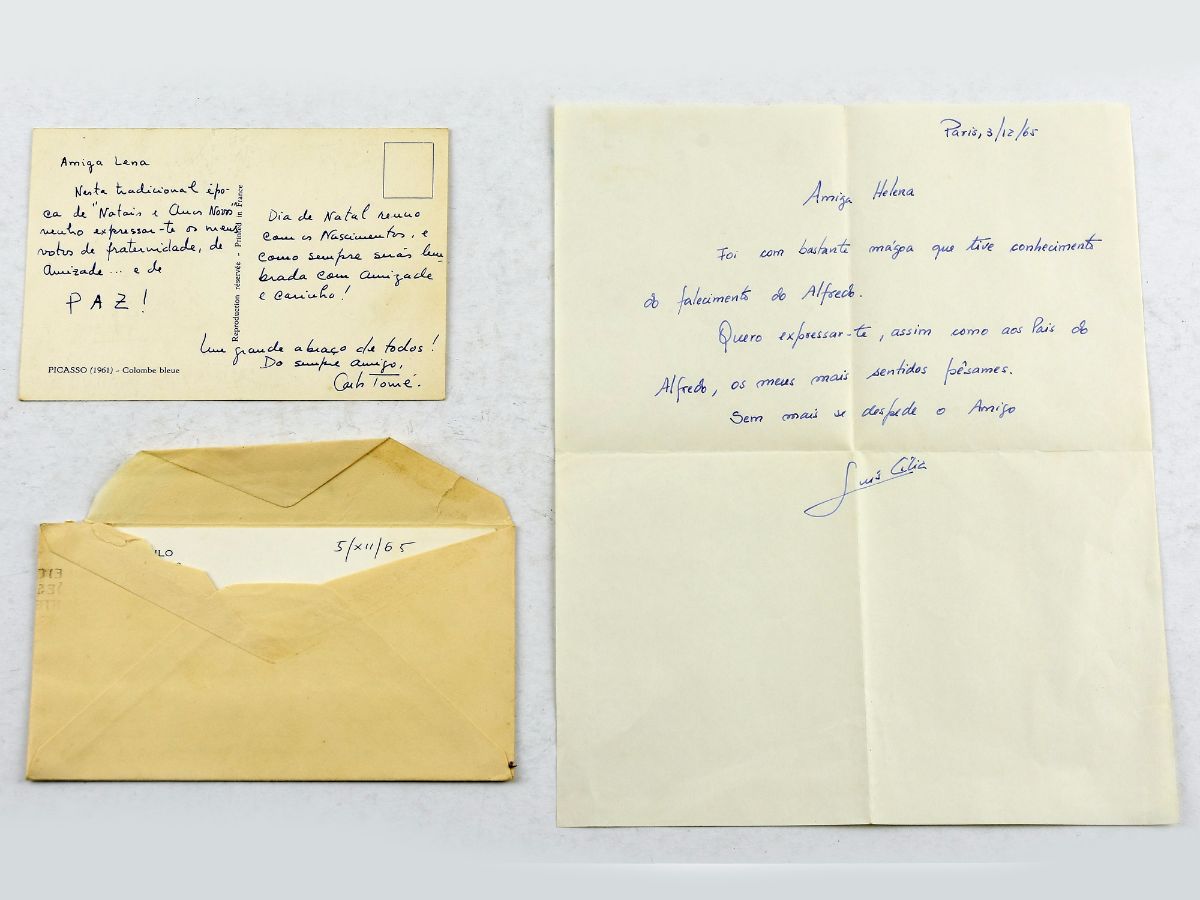 Amiga Lena
Nesta tradicional épo-
ca de "Natais e Anos Novos"
venho expressar-te os meus
votos de fraternidade, de
Amizade... e de
PAZ!
PICASSO (1961) - Colombe bleue
Reproduction réservée - Printed in France
Dia de Natal reuno
com os Nascimentos, e
como sempre serás lem-
brada com amizade
e carinho!
Um grande abraço de todos!
Do sempre amigo,
Carlos Tomé.
ILO
5/XII/65
Paris, 3/12/65
Amiga Helena
Foi com bastante mágoa que tive conhecimento
do falecimento do Alfredo.
Quero expressar-te, assim como aos Pais do
Alfredo, os meus mais sentidos pêsames.
Sem mais se despede o Amigo
Luís Cília